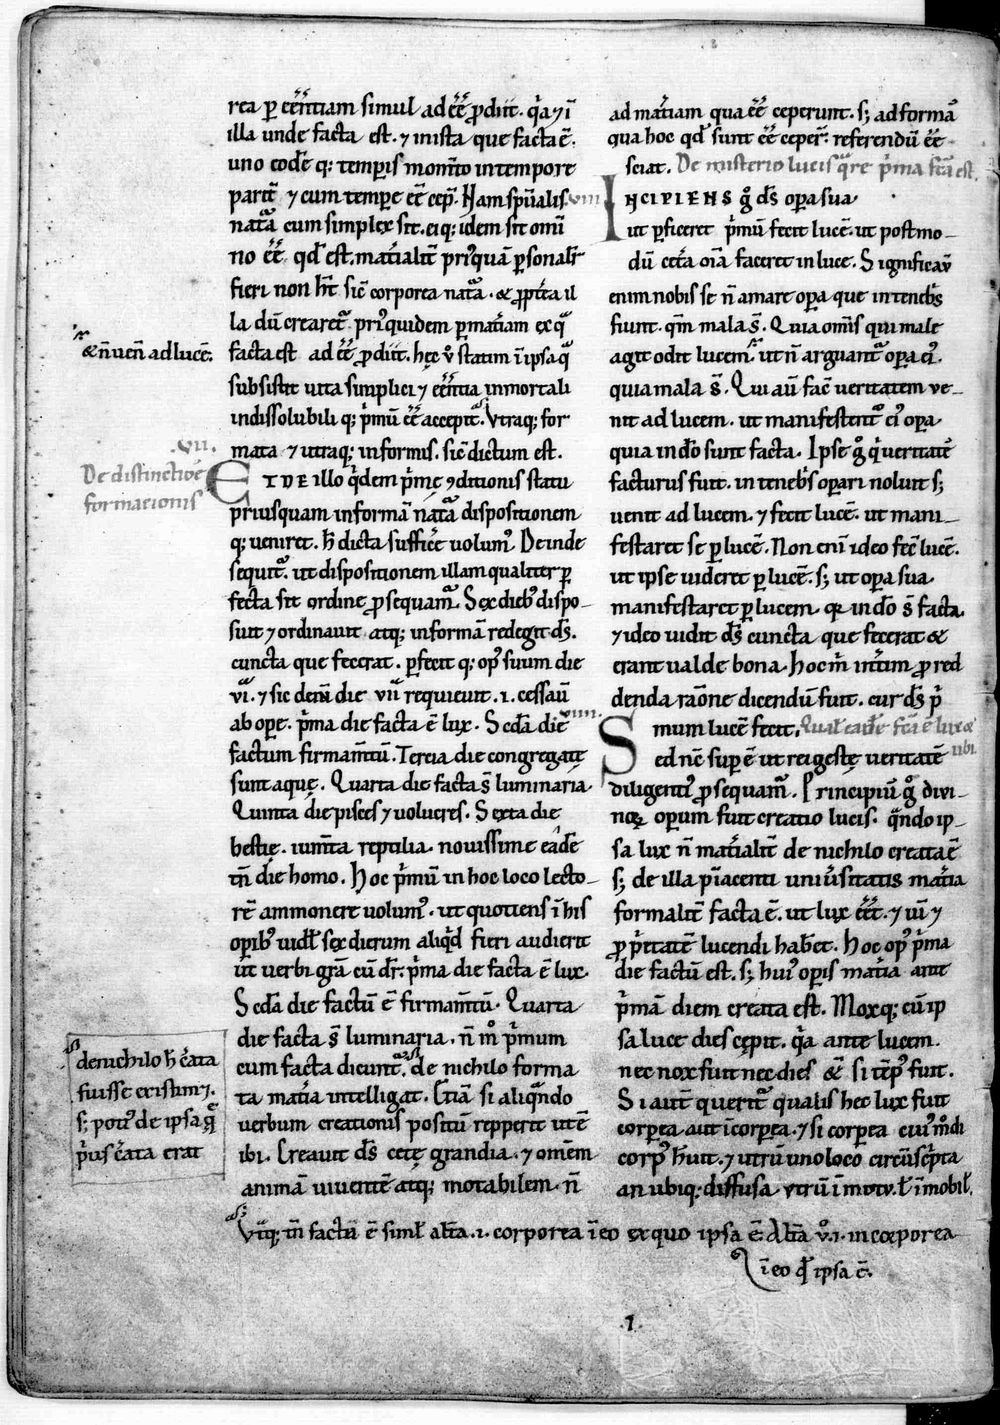 rea ꝑ eēntiam simul ad eē ꝓdiit. q̄a ⁊ ī
illa unde facta est. ⁊ in ista que facta ē.
uno codē q; temꝑis mom̄to in tempore
⁊ cum temꝑe eē cep̄. Nam spūalis
nat̄a cum simplex sit. eiq; idem sit om̄i
no eē qđ est. mat̄ialit̄ p̄usquā ꝑsonalit̄
fieri non h̄t sic̄ corporea nat̄a. & ꝓpt̄ea il
la dū crearet̄. p̄us quidem ꝑ mat̄iam ex q̄
facta est ad eē ꝓdiit. hec v̊ statim ī ipsa q̄
subsistit uita simplici ⁊ eēntia inmortali
indissolubili q; p̄mū eē accepit. Vtraq; for
mata ⁊ utraq; informis. sic̄ dictum est.
& n̄ uen̄ ad lucē.
.vii.
De distinctione
formacionis
ET DE illo q̄dem p̄mę ꝯditionis statu
priusquam in formā nat̄a dispositionem
q; ueniret. h̄ dicta suffic̄e uolum᷒. Deinde
sequit̄. ut dispositionem illam qualiter ꝑ
fecta sit ordine ꝓsequam̄. Sex dieb᷒ dispo-
suit ⁊ ordinauit atq; in formā redegit d̄s.
cuncta que fecerat. ꝑfecit q; op᷒ suum die
vi. ⁊ sic dem̄ die vii requieuit. .i. cessau̅
ab oꝑe. p̄ma die facta ē lux. Sc̄da die
factum firmam̄tū. Tercia die congregatę
sunt aquę. Quarta die facta s̄ luminaria
Quinta die pisces ⁊ volucres. Sexta die
bestię. ium̄ta reptilia. nouissime eadē
tn̄ die homo. Hoc p̄mū in hoc loco lecto-
rē ammonere uolum᷒. ut quotiens ī his
oꝑib᷒ sex dierum aliq̄d fieri audierit
ut uerbi grā cū dr̄. p̄ma die facta ē lux.
Sc̄da die factū ē firmam̄tū. Quarta
die facta s̄ luminaria. n̄ īm̊ p̄mum
cum facta dicunt̄. de nichilo forma
ta mat̄ia intelligat. Etiā si aliq̄ndo
uerbum creationis positū repperit ut ē
ibi. Creauit d̄s cetę grandia. ⁊ om̄em
animā uiuentē atq; motabilem. n̄
de nichilo h̄ c̄ata
fuisse existim
s; poti᷒ de ipsa q̄
p̄us c̄ata erat
ad mat̄iam qua eē ceperunt. s; ad formā
qua hoc qđ sunt eē ceper̄. referendū eē
sciat. De misterio lucis q̄re p̄ma fc̄a est.
viii
INCIPIENS g̊ d̄s oꝑa sua
ut ꝑficeret p̄mū fecit lucē. ut postmo-
dū cet̄a oīa faceret in luce. Significau̅
enim nobis se n̄ amare oꝑa que in teneb̄s
fiunt. q̄m mala s̄. Quia om̄is qui male
agit odit lucem. ut n̄ arguant̄ oꝑa ei᷒.
quia mala s̄. Qui au̅ fac̄ ueritatem ve-
nit ad lucem. ut manifestent̄ ei᷒ oꝑa
quia in d̄o sunt facta. Ipse g̊ q̄ ueritatē
facturus fuit. in teneb̄s oꝑari noluit s;
uenit ad lucem. ⁊ fecit lucē. ut mani-
festaret se ꝑ lucē. Non eni̅ ideo fec̄ lucē.
ut ipse uideret ꝑ lucē. s; ut oꝑa sua
manifestaret ꝑ lucem. q̄ in d̄o s̄ facta.
⁊ ideo uidit d̄s cuncta que fecerat &
erant ualde bona. hoc m̊ int̄im ꝓ red
denda rātione dicendū fuit. cur d̄s p̄
mum lucē fecit. Qualis eadē fc̄a ē lux &
ubi.
viiii.
Sed nc̄ suꝑē ut rei gestę veritatē
diligenti᷒ ꝓsequam̄. Principiū g̊ diui-
noꝝ oꝑum fuit creatio lucis. q̄ndo ip-
sa lux n̄ mat̄ialit̄ de nichilo creata ē
s; de illa p̄iacenti uniu̅sitatis mat̄ia
formalit̄ facta ē. ut lux ēēt. ⁊ uī ⁊
ꝓp̄etatē lucendi hab̄et. Hoc op᷒ p̄ma
die factū est. s; hui᷒ oꝑis mat̄ia ante
p̄mā diem creata est. Moxq; cū ip
sa luce dies cępit. q̄a ante lucem.
nec nox fuit nec dies & si temp᷒ fuit.
Si aut̄ querit̄ qualis hec lux fuit
corꝑea aut īcorꝑea. ⁊ si corꝑea cui᷒ modi
corp᷒ h̄uit. ⁊ utrū uno loco circūsc̄pta
an ubiq; diffusa vtrū ī mot. l̄ īmobil̄.
Vt̄aq; tn̄ facta ē simł alt̄a .i. corporea ī eo ex quo ipsa ē Alt̄a v̊ .i. incorporea
ī eo qđ ipsa ē.
.7.